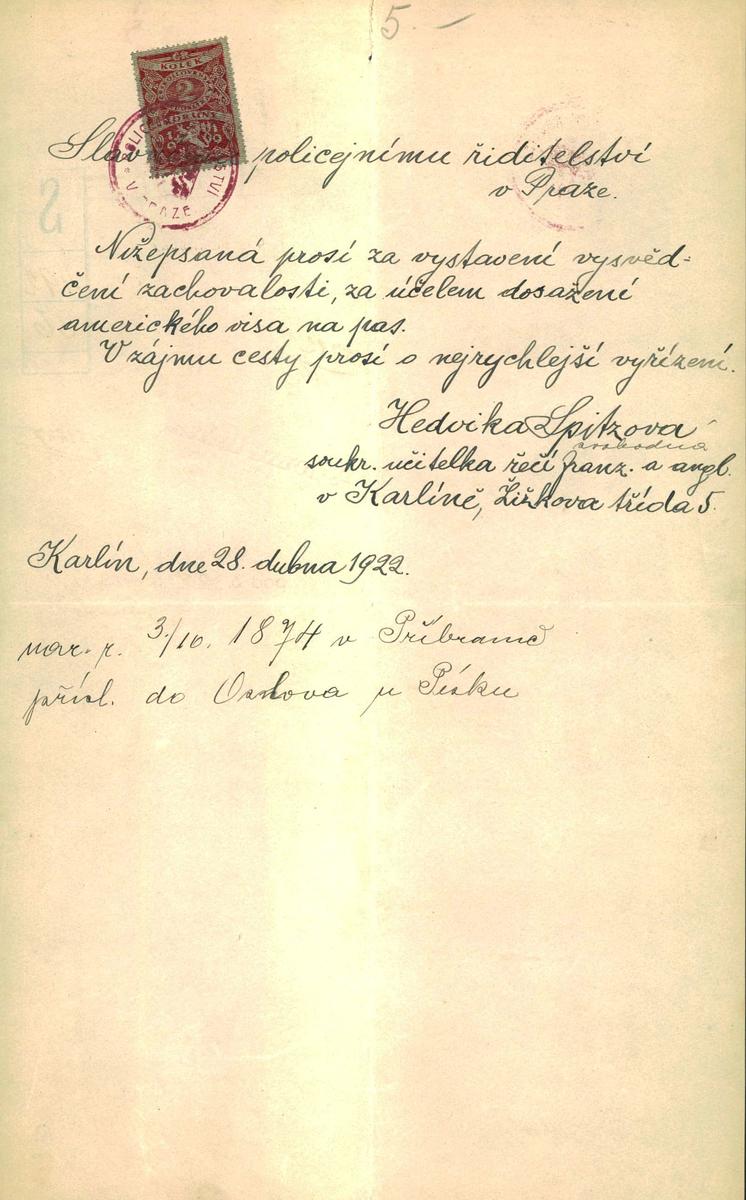 5. —
ČR
KOLEK
2
KORUNY
1919
V PRAZE
policejnímu řiditelství
v Praze.
Nížepsaná prosí za vystavení vysvěd-
čení zachovalosti, za účelem dosažení
amerického visa na pas.
V zájmu cesty prosí o nejrychlejší vyřízení.
Hedvika Spitzová
svobodná
soukr. učitelka řečí franz. a angl.
v Karlíně, Žižkova třída 5.
Karlín, dne 28. dubna 1922.
nar. r. 3./10. 1874 v Příbramě
přísl. do Oslova u Písku